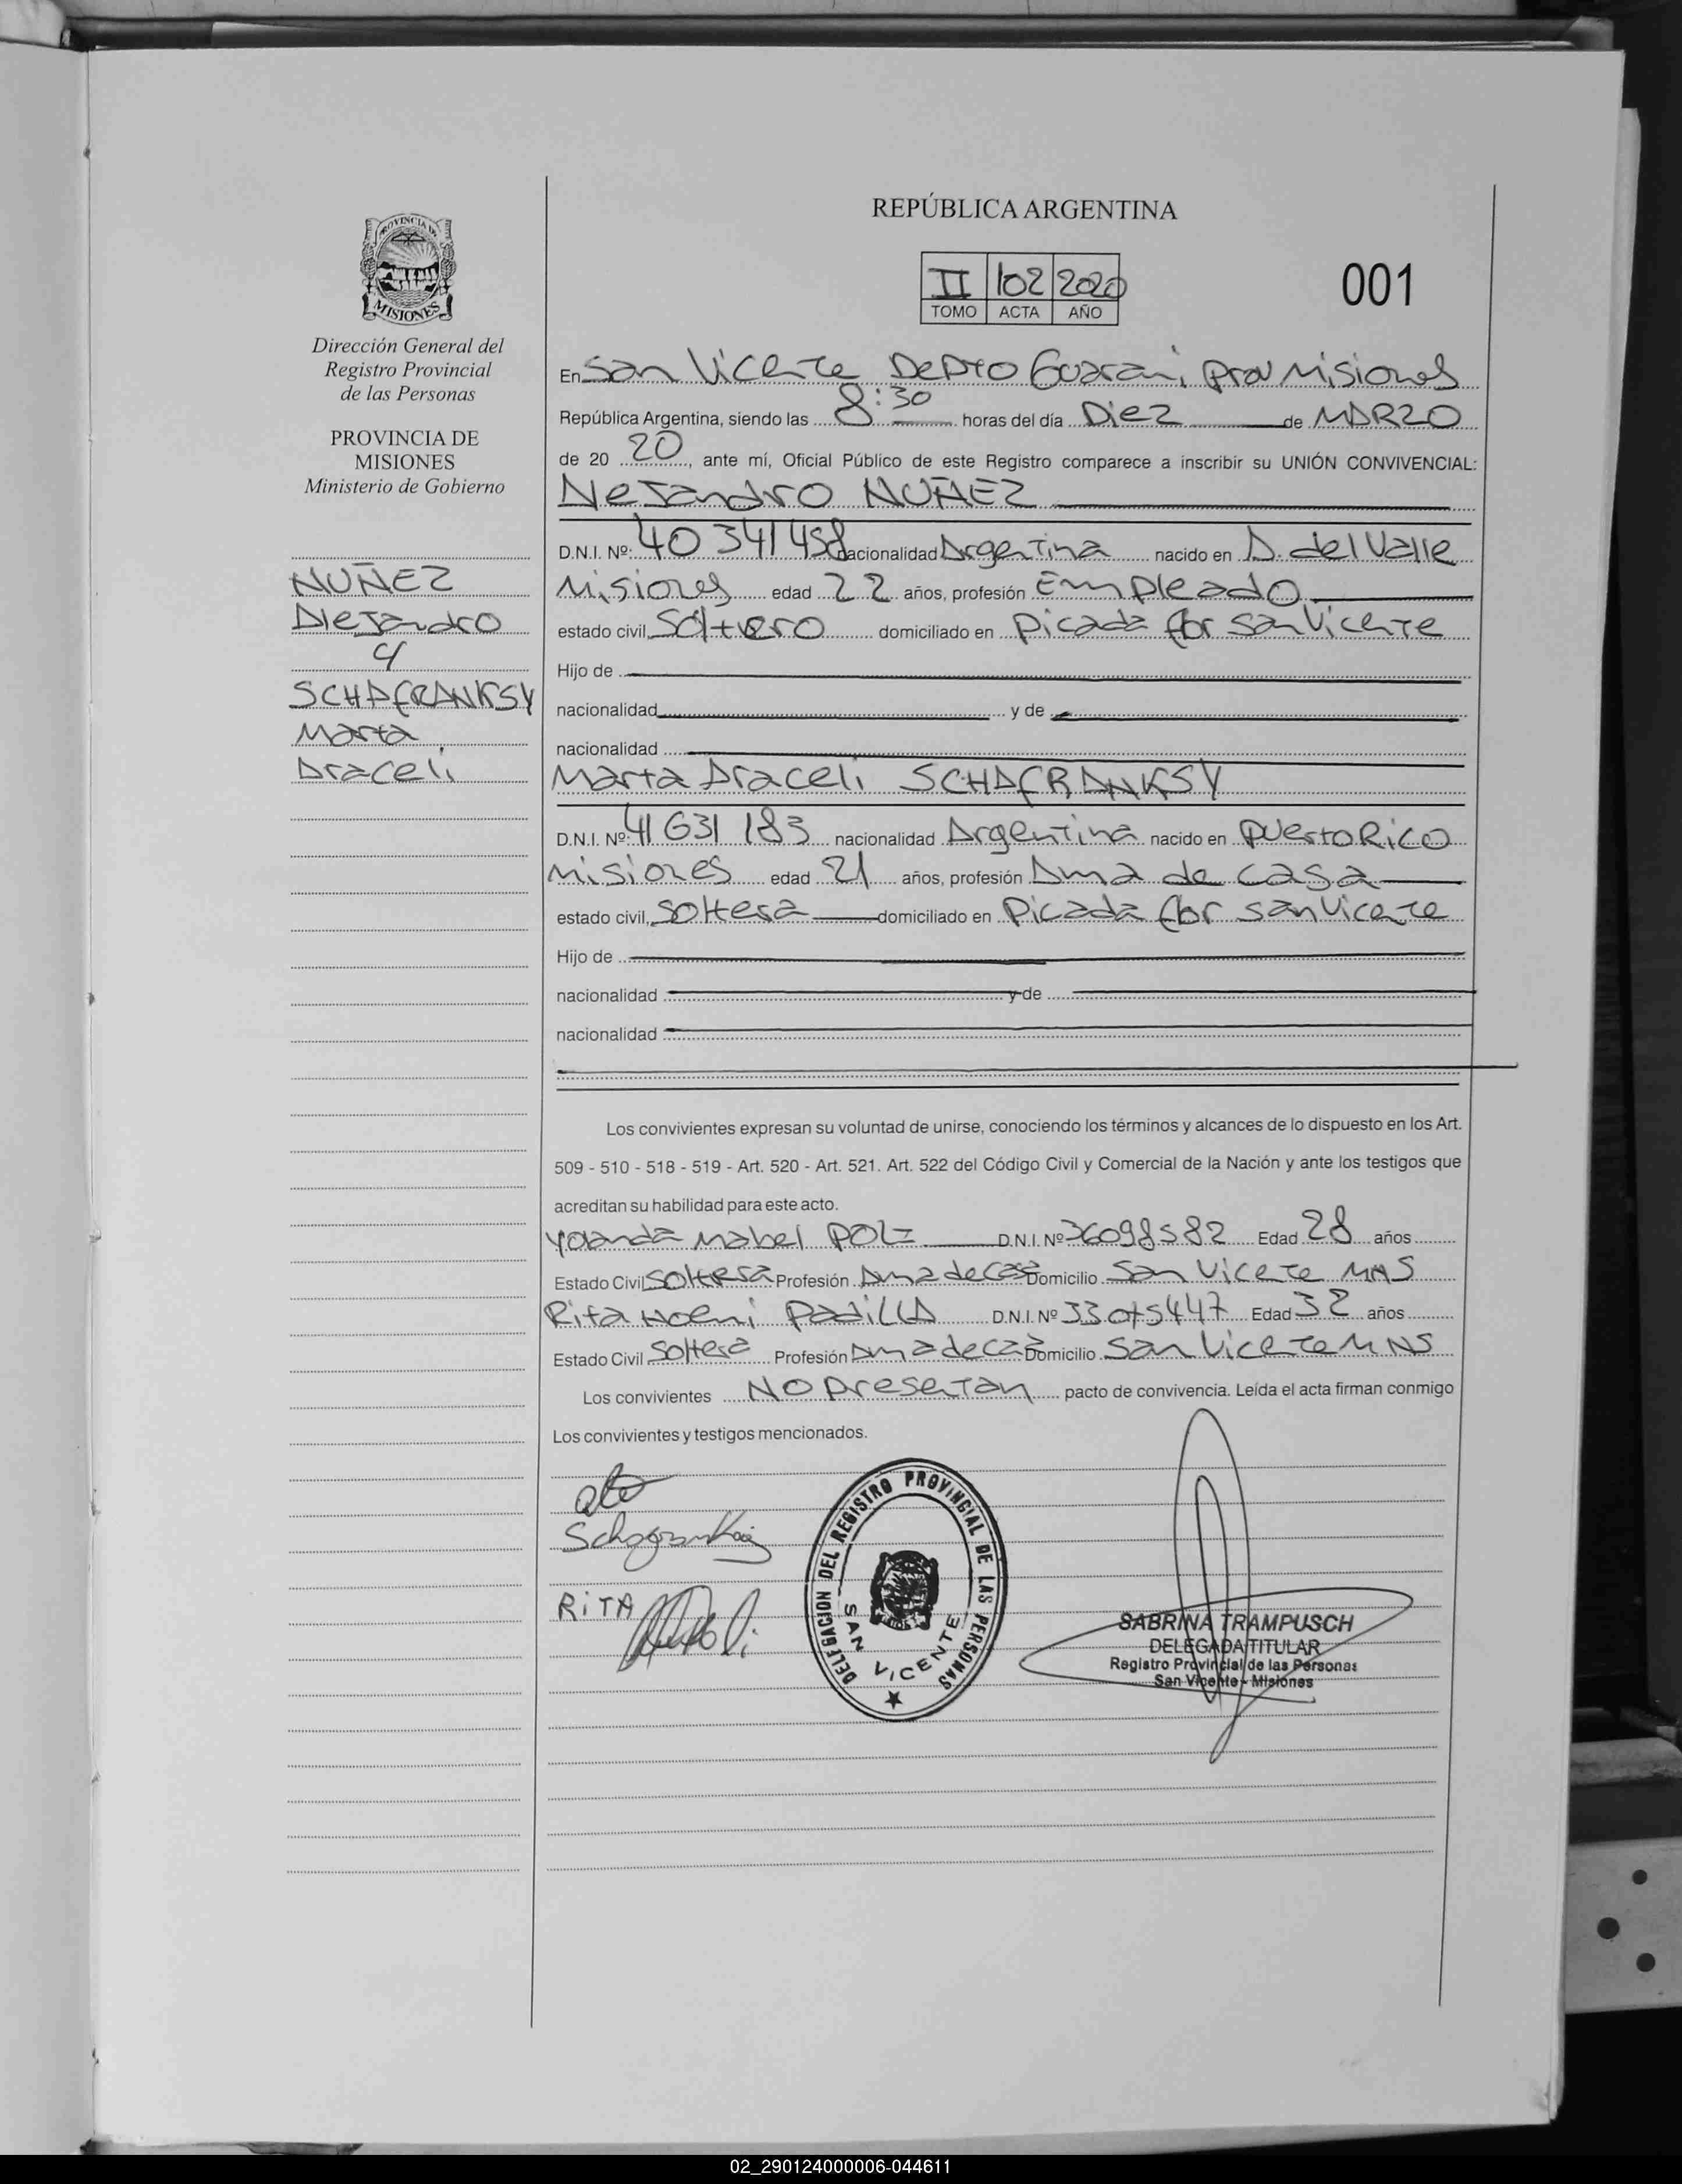 REPÚBLICA ARGENTINA
II 102 2020
TOMO ACTA AÑO
001
PROVINCIA DE
MISIONES
Dirección General del
Registro Provincial
de las Personas
PROVINCIA DE
MISIONES
Ministerio de Gobierno
NUÑEZ
Alejandro
y
SCHAFRANKSY
Marta
Araceli
En San Vicente Depto Guarani prov Misiones
República Argentina, siendo las 8:30 horas del día Diez de MARZO
de 20 20, ante mí, Oficial Público de este Registro comparece a inscribir su UNIÓN CONVIVENCIAL:
Alejandro NUÑEZ
D.N.I. Nº: 40 341 458 nacionalidad Argentina nacido en A. del Valle
Misiones edad 22 años, profesión Empleado
estado civil Soltero domiciliado en picada flor San Vicente
Hijo de
nacionalidad y de
nacionalidad
Marta Araceli SCHAFRANKSY
D.N.I. Nº: 41 631 183 nacionalidad Argentina nacido en Puerto Rico
Misiones edad 21 años, profesión Ama de casa
estado civil, Soltera domiciliado en Picada flor San Vicente
Hijo de
nacionalidad y de
nacionalidad
Los convivientes expresan su voluntad de unirse, conociendo los términos y alcances de lo dispuesto en los Art.
509 - 510 - 518 - 519 - Art. 520 - Art. 521. Art. 522 del Código Civil y Comercial de la Nación y ante los testigos que
acreditan su habilidad para este acto.
Yolanda Mabel POLZ D.N.I. Nº 36098582 Edad 28 años
Estado Civil Soltera Profesión Ama de casa Domicilio San Vicente MNS
Rita Noemi PADILLA D.N.I. Nº 33075447 Edad 32 años
Estado Civil Soltera Profesión Ama de casa Domicilio San Vicente MNS
Los convivientes NO presentan pacto de convivencia. Leída el acta firman conmigo
Los convivientes y testigos mencionados.
RITA
DELEGACION DEL REGISTRO PROVINCIAL DE LAS PERSONAS
SAN VICENTE
SABRINA TRAMPUSCH
DELEGADA TITULAR
Registro Provincial de las Personas
San Vicente - Misiones
02_290124000006-044611